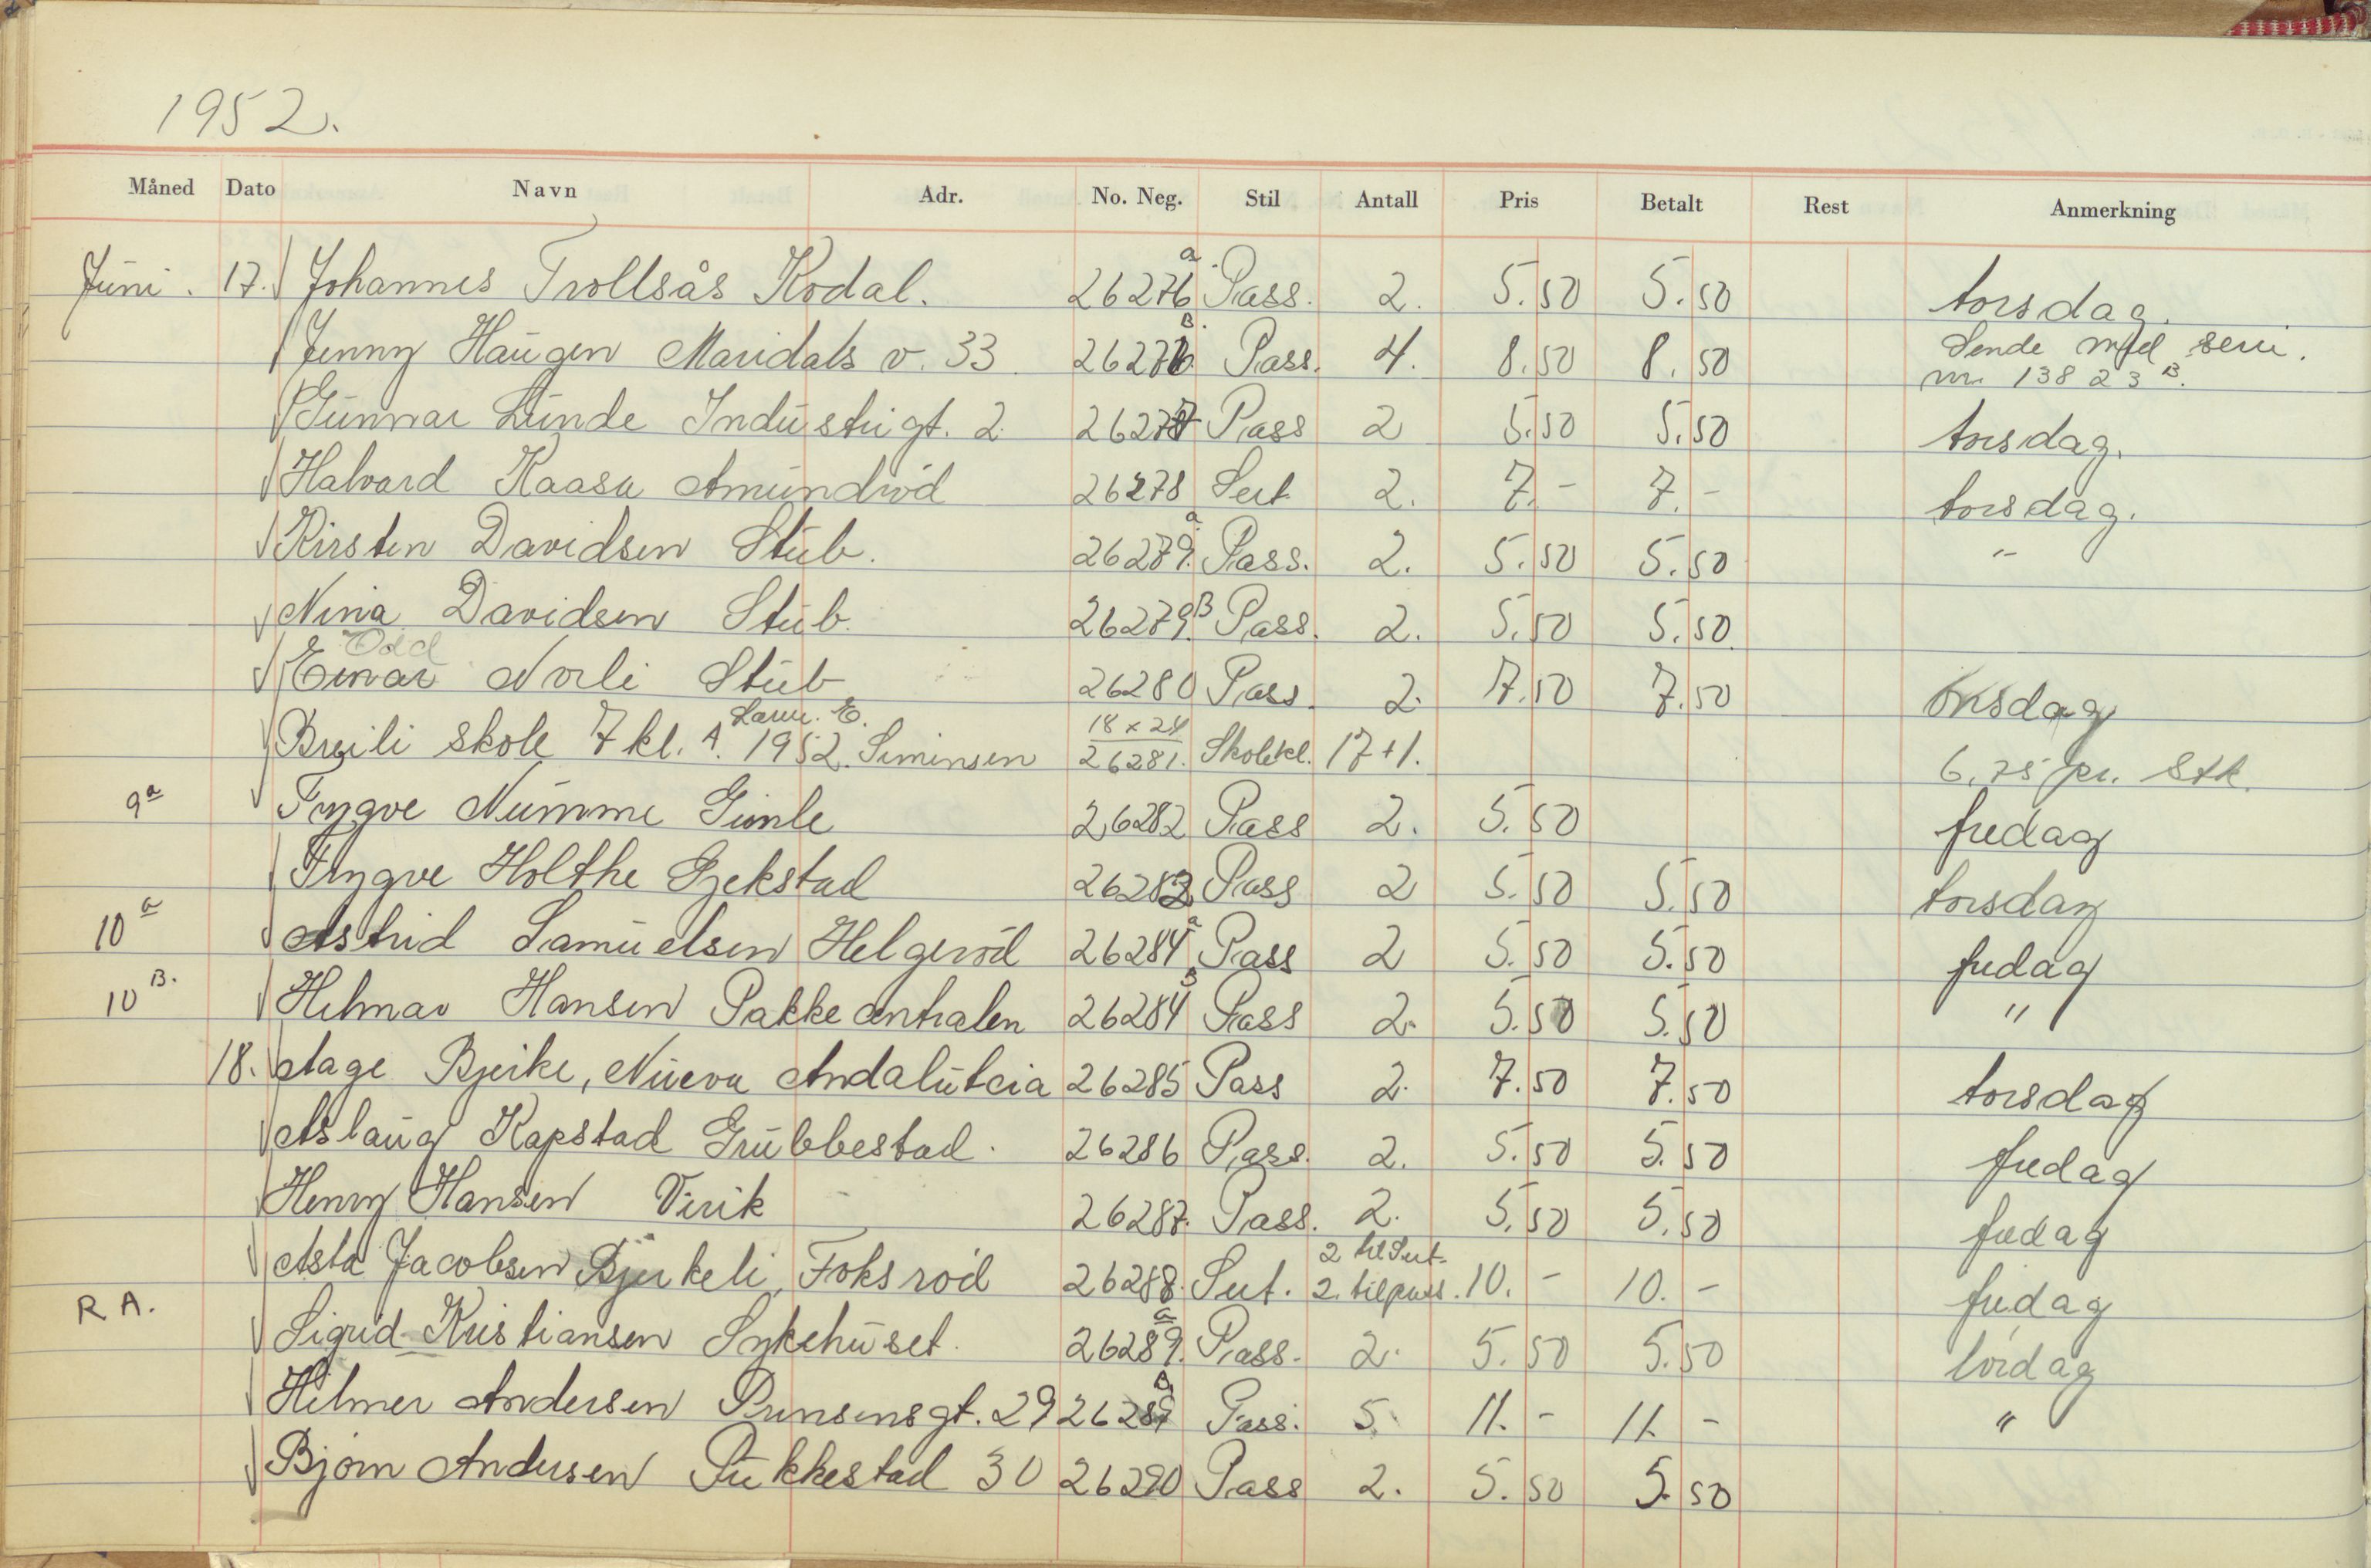 1952.
Måned Dato Navn Adr. No. Neg. Stil Antall Pris Betalt Rest Anmerkning
Juni. 17. Johannes Trollsås Kodal. 26276 a. Pass. 2. 5.50 5.50 torsdag.
Jenny Haugen Maridals v. 33. 26276 B. Pass. 4. 8.50 8.50 Sende med serie.
nr. 13823 B.
Gunnar Lunde Industrigt. 2. 26277 Pass 2 5.50 5.50 torsdag.
Halvard Kaasa Amundrød 26278 Sert 2. 7.- 7.- torsdag.
Kirsten Davidsen Stub. 26279. a Pass. 2. 5.50 5.50 -"-
Nina Davidsen Stub. 26279. B Pass. 2. 5.50 5.50.
Odd
Einar Norli Stub 26280 Pass. 2. 7.50 7.50 onsdag
Laur. E. 18 x 24
Breili skole 7 kl. A. 1952. Siminsen 26281. Skolekl. 17+1. 6,75 pr. Stk.
9 a Trygve Numme Gimle 26282 Pass 2. 5.50 fredag
Trygve Holthe Gjekstad 26283 Pass 2 5.50 5.50 torsdag
10 a Astrid Samuelsen Helgerød 26284 a Pass 2 5.50 5.50 fredag
10 B. Helmar Hansen Pakkecentralen 26284 B Pass 2. 5.50 5.50 "
18. Aage Bjerke, Nueva Andalutcia 26285 Pass 2. 7.50 7.50 torsdag
Aslaug Kapstad Grubbestad. 26286 Pass. 2. 5.50 5.50 fredag
Henry Hansen Virik 26287. Pass. 2. 5.50 5.50 fredag
2 til Sert.
Asta Jacobsen Bjerkeli, Foksrød 26288. Sert. 2. til pass. 10.- 10.- fredag
R A. Sigrid Kristiansen Sykehuset. 26289. a Pass. 2. 5.50 5.50 lørdag
Hilmer Andersen Prinsensgt. 29 26289 B. Pass. 5. 11.- 11.- "
Bjørn Andersen Pukkestad 30 26290 Pass 2. 5.50 5.50